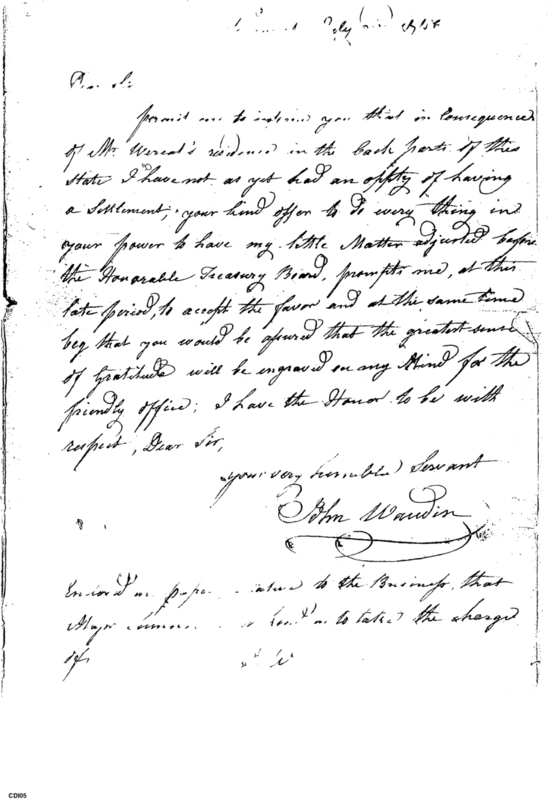 July
Dear Sir
permit me to inform you that in Consequence
of Mr. Wereat's residence in the back parts of this
State I have not as yet had an oppty of having
a Settlement; your kind offer to do every thing in
your power to have my little Matter adjusted before
the Honorable Treasury Board, prompts me, at this
late period, to accept the favor and at the same time
beg that you would be assured that the greatest sense
of Gratitude will be engraved on my Mind for the
friendly office; I have the Honor to be with
respect, Dear Sir,
your very humble Servant
John Wandin
to the Business, that
Major to take the charge
of
CDI05